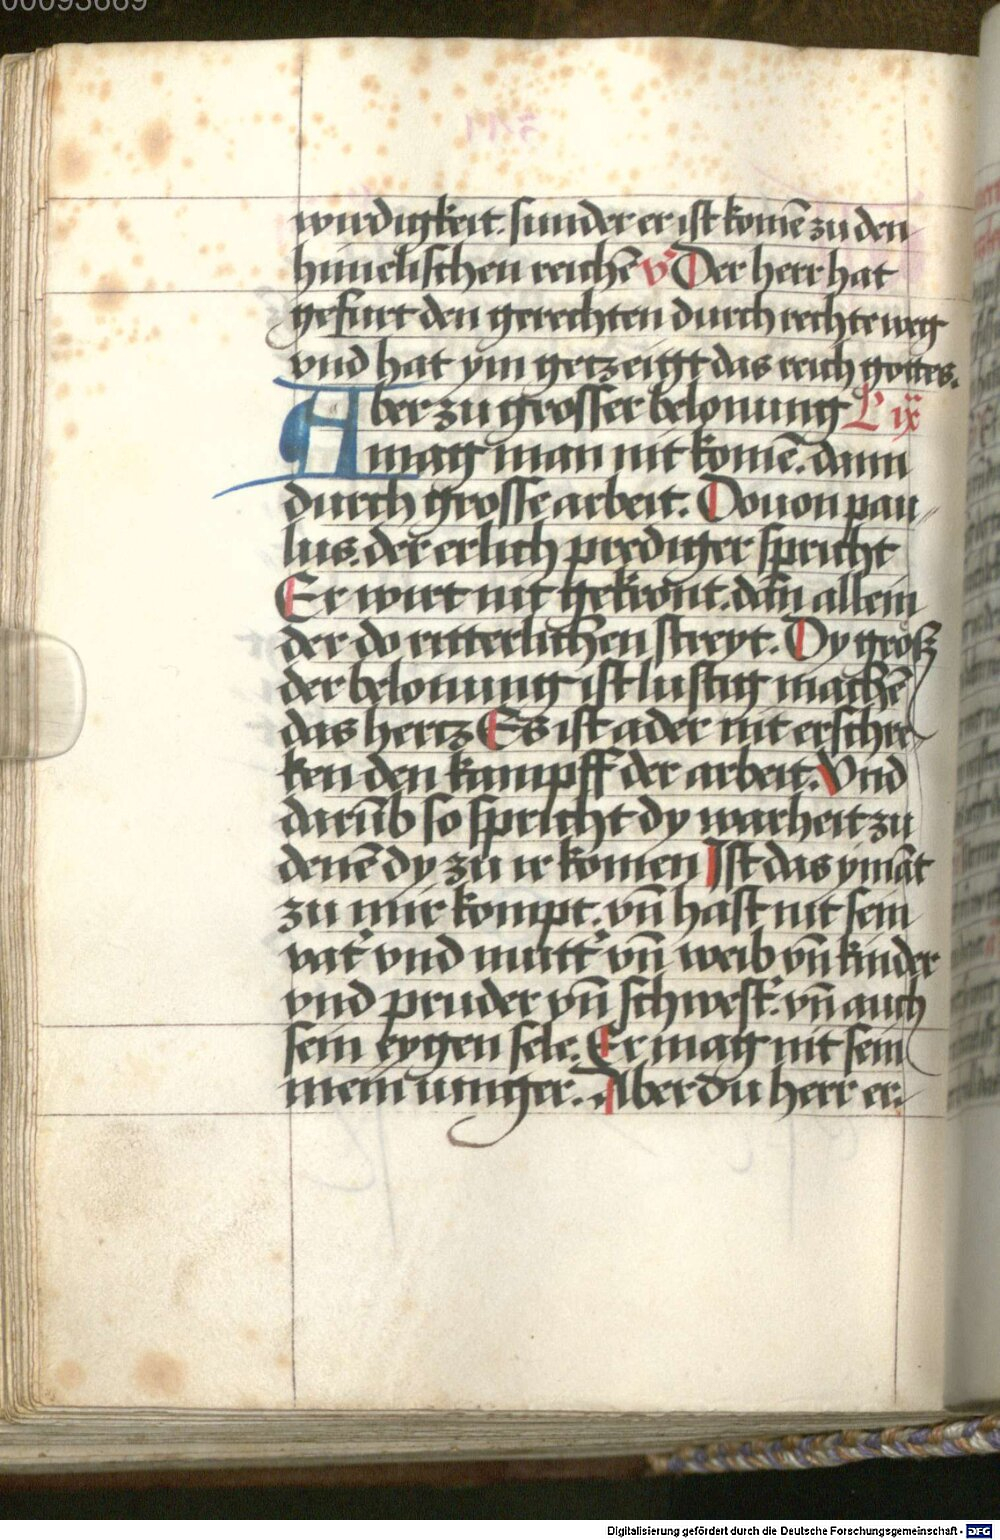 00093669
wirdigkeit. sunder er ist komē zu den
himelischen reichē V̕ Der herr hat
gefurt den gerechten durch rechte weg
vnd hat ym getzeigt das reich gottes.
Aber zu grosser belonung L ix
mag man nit komē. dann
durch grosse arbeit. Douon pau//
lus. der erlich prediger spricht
Er wirt nit gekront. dān allein
der do ritterlichen streyt. Dy größ
der belonung ist lustig machē
das hertz Es ist ader nit erschre//
ken den kampff der arbeit. Vnd
darūb so spricht dy warheit zu
denē dy zu ir komen Ist das ymāt
zu mir kompt. vn̄ hast nit sein
vat̕ vnd mutt̕ vn̄ weib vn̄ kinder
vnd pruder vn̄ schwest̕. vn̄ auch
sein eygen sele. Er mag nit sein
mein iunger. Aber du herr er.
Digitalisierung gefördert durch die Deutsche Forschungsgemeinschaft - DFG